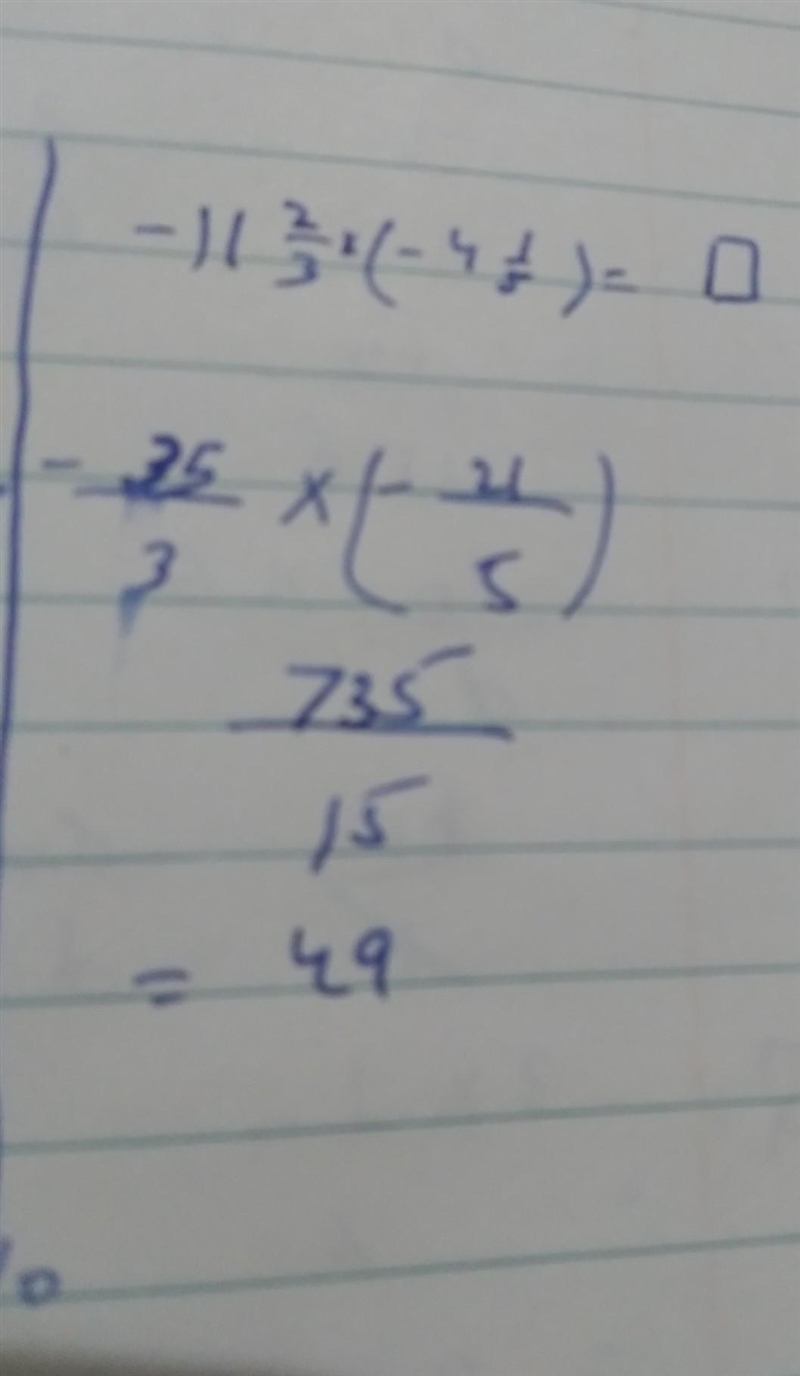 -11 2/3 × (-4 1/5) = □
- 35/3 × (- 21/5)
735/15
= 49
10